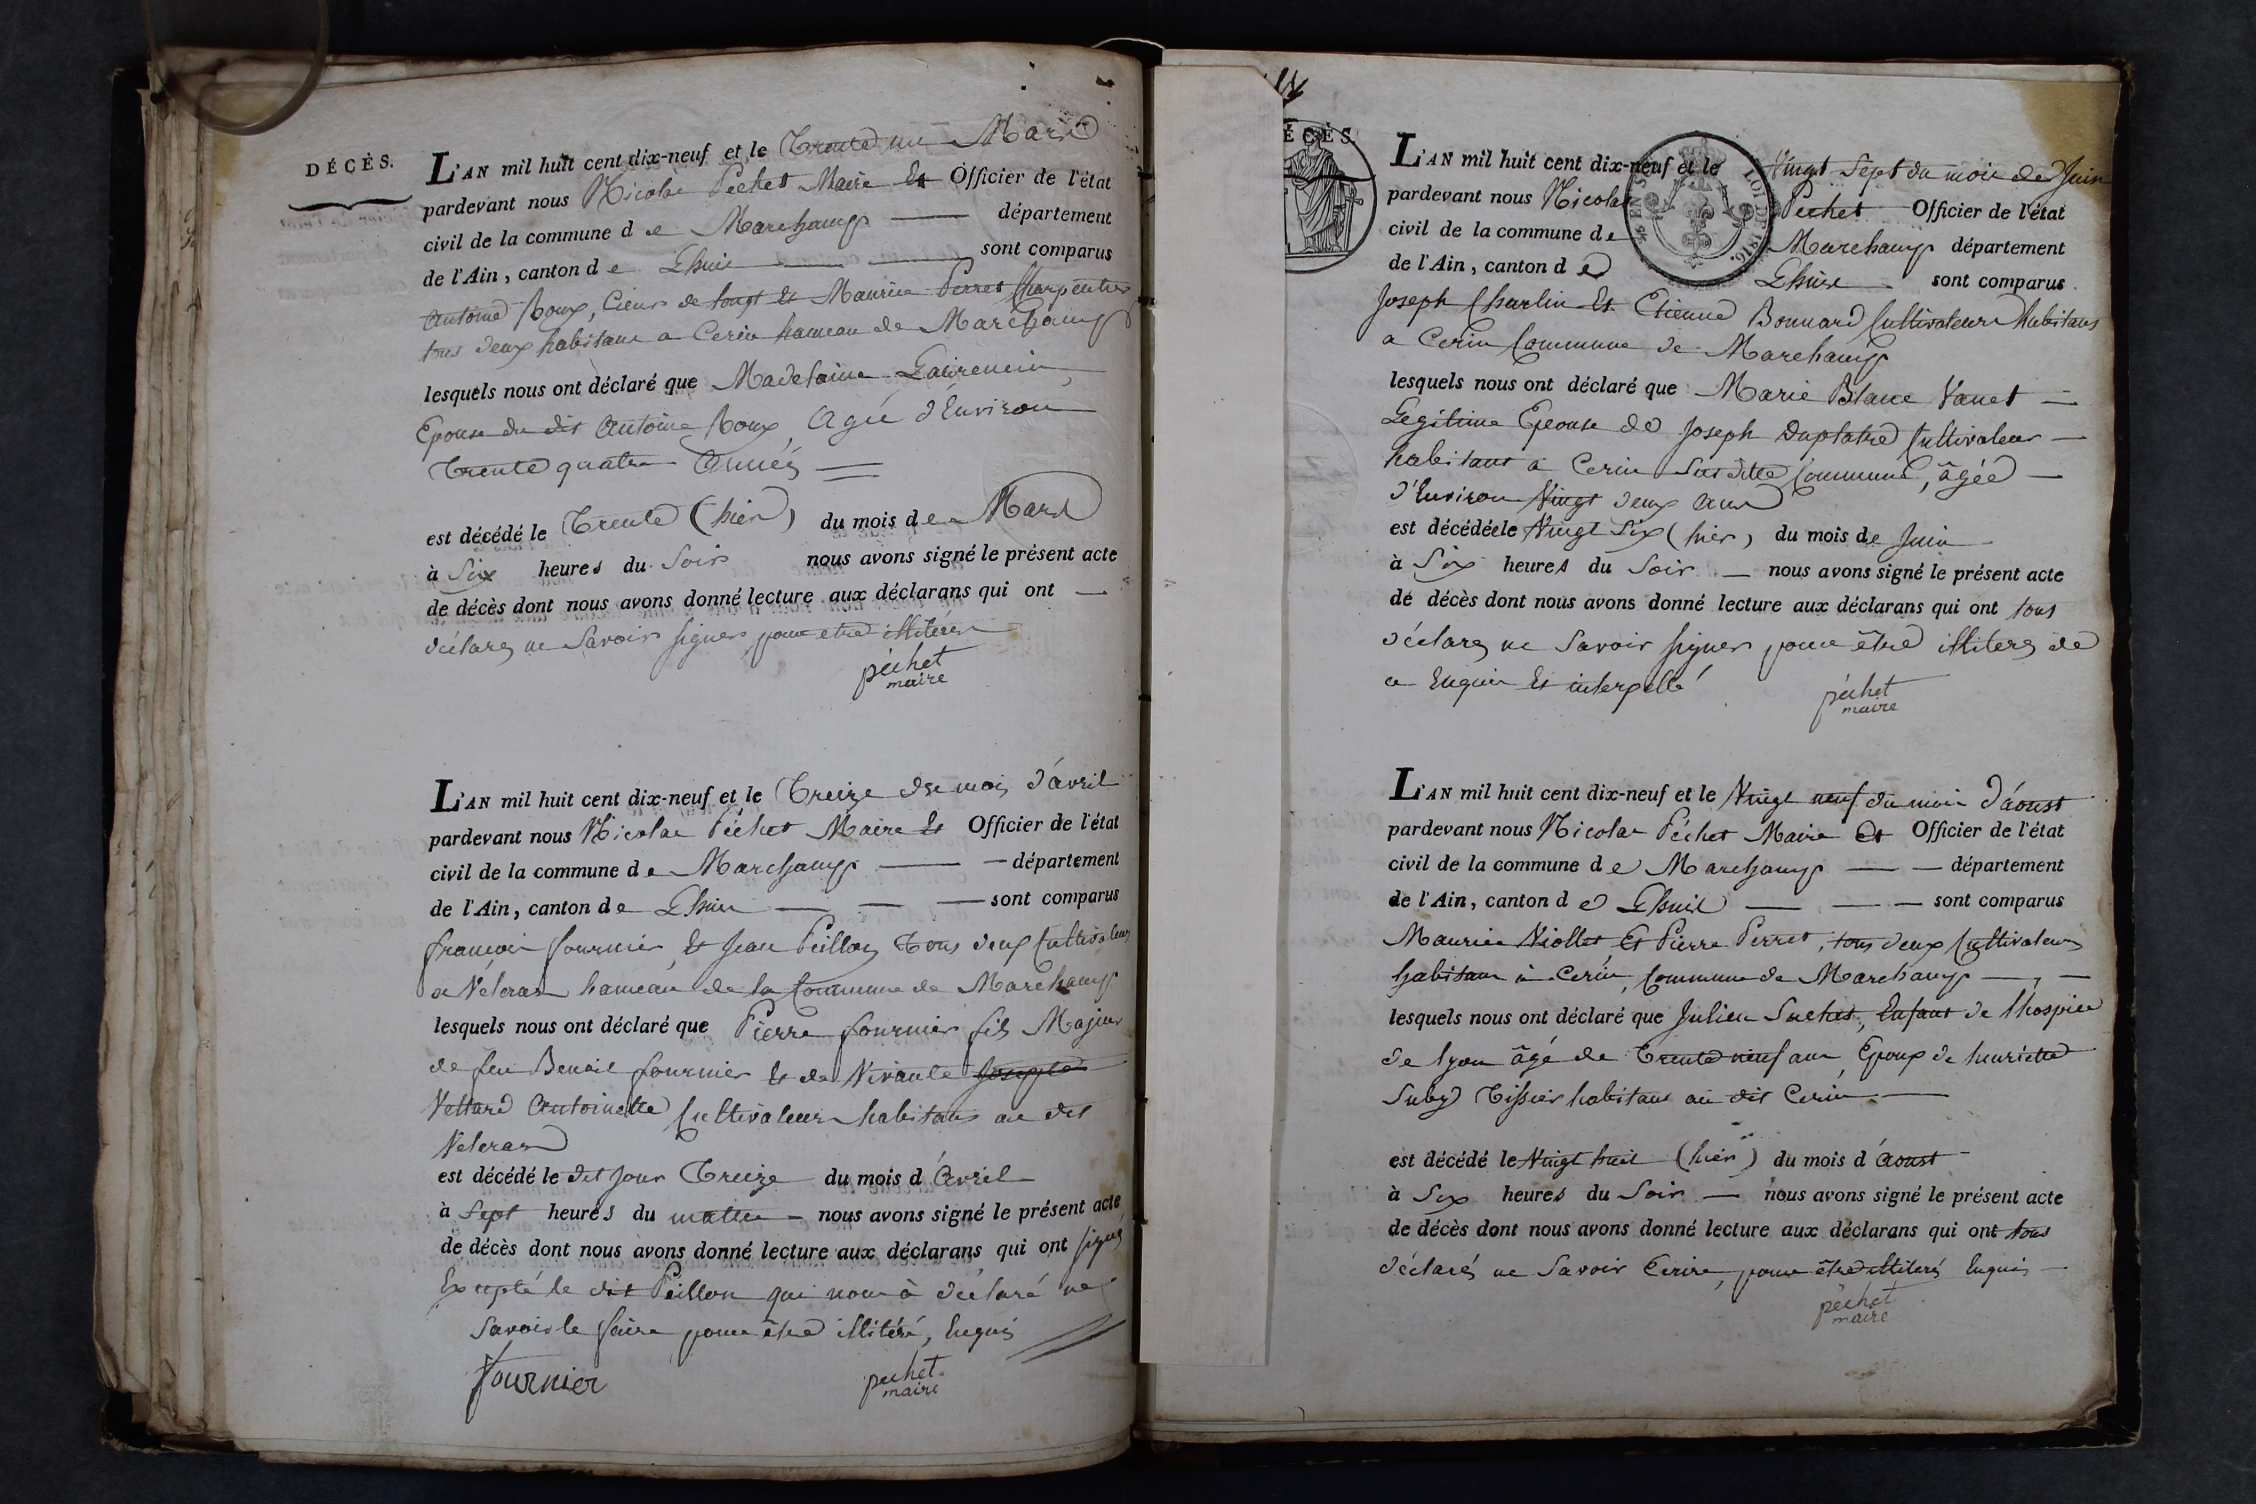 DÉCÈS.
L'AN mil huit cent dix-neuf et le Trente un Mars
pardevant nous Nicolas Péchet Maire et Officier de l'état
civil de la commune de Marchamp département
de l'Ain, canton de Lhuis sont comparus
Antoine Roux, Cieur de longt et Maurice Perret Charpentier
tous deux habitans a Cerin hameau de Marchamp
lesquels nous ont déclaré que Madelaine Laurencin,
Epouse du dit Antoine Roux, Agée d'Environ
Trente quatre Années
est décédé le Trente (hier) du mois de Mars
à Six heures du Soir nous avons signé le présent acte
de décès dont nous avons donné lecture aux déclarans qui ont
déclarés ne Savoir signer pour etre illitérés
péchet
maire
L'AN mil huit cent dix-neuf et le Treize du mois d'avril
pardevant nous Nicolas Péchet Maire et Officier de l'état
civil de la commune de Marchamp département
de l'Ain, canton de Lhuis sont comparus
françois fournier, et Jean Peillon Tous deux Cultivateurs
a Véleran hameau de la Commune de Marchamp
lesquels nous ont déclaré que Pierre fournier fils Majeur
de feu Benoit fournier et de Vivante Josephte
Vettard Antoinette Cultivateur habitans au dit
Veleran
est décédé le dit jour Treize du mois d'Avril
à Sept heures du matin nous avons signé le présent acte
de décès dont nous avons donné lecture aux déclarans qui ont signés
Excepté le dit Peillon qui nous à déclaré ne
Savoir le faire pour être illitéré, Enquis
fournier
péchet
maire
ÉCÈS.
LOI DE 1816.
L'AN mil huit cent dix-neuf et le Vingt Sept du mois de Juin
pardevant nous Nicolas Péchet Officier de l'état
civil de la commune de Marchamp département
de l'Ain, canton de Lhuis sont comparus
Joseph Charlin et Etienne Bonnard Cultivateurs habitans
a Cerin Commune de Marchamp
lesquels nous ont déclaré que Marie Blanc Vanet
Legitime Epouse de Joseph Duplatre Cultivateur
habitant à Cerin Susditte Commune, âgée
d'Environ Vingt deux ans
est décédée le Vingt Six (hier) du mois de Juin
à Six heures du Soir nous avons signé le présent acte
de décès dont nous avons donné lecture aux déclarans qui ont tous
déclarés ne Savoir signer pour être illiterés de
ce Enquis et interpellé
péchet
maire
L'AN mil huit cent dix-neuf et le Vingt neuf du mois d'aoust
pardevant nous Nicolas Péchet Maire et Officier de l'état
civil de la commune de Marchamp département
de l'Ain, canton de Lhuis sont comparus
Maurice Viollet, Et Pierre Perret, tous deux Cultivateurs
habitans à Cerin, Commune de Marchamp
lesquels nous ont déclaré que Julien Suchet, Enfant de l'hospice
de lyon âgé de Trente neuf ans, Epoux de henriette
Tissier habitant au dit Cerin
est décédé le Vingt huit (hier) du mois d'Aoust
à Six heures du Soir nous avons signé le présent acte
de décès dont nous avons donné lecture aux déclarans qui ont tous
déclarés ne Savoir Ecrire, pour être illiterés Enquis
péchet
maire